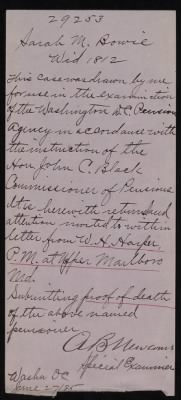 29253
Sarah M. Bowie
Wid 1812
This case was drawn by me
for use in the examination
of the Washington D.C. Pension
Agency in accordance with
the instruction of the
Hon John C. Black
Commissioner of Pensions
It is herewith returned and
attention invited to within
letter from W. H. Harper,
P.M. at Upper Marlboro
Md.
Submitting proof of death
of the above named
pensioner
A B Newcomb
Special Examiner
Washn DC
June 27/85